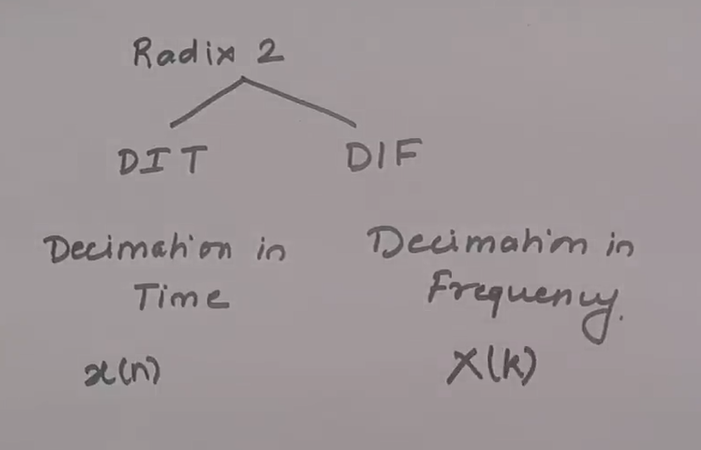 Radix 2
DIT DIF
Decimation in Decimation in
Time Frequency.
x(n) X(k)